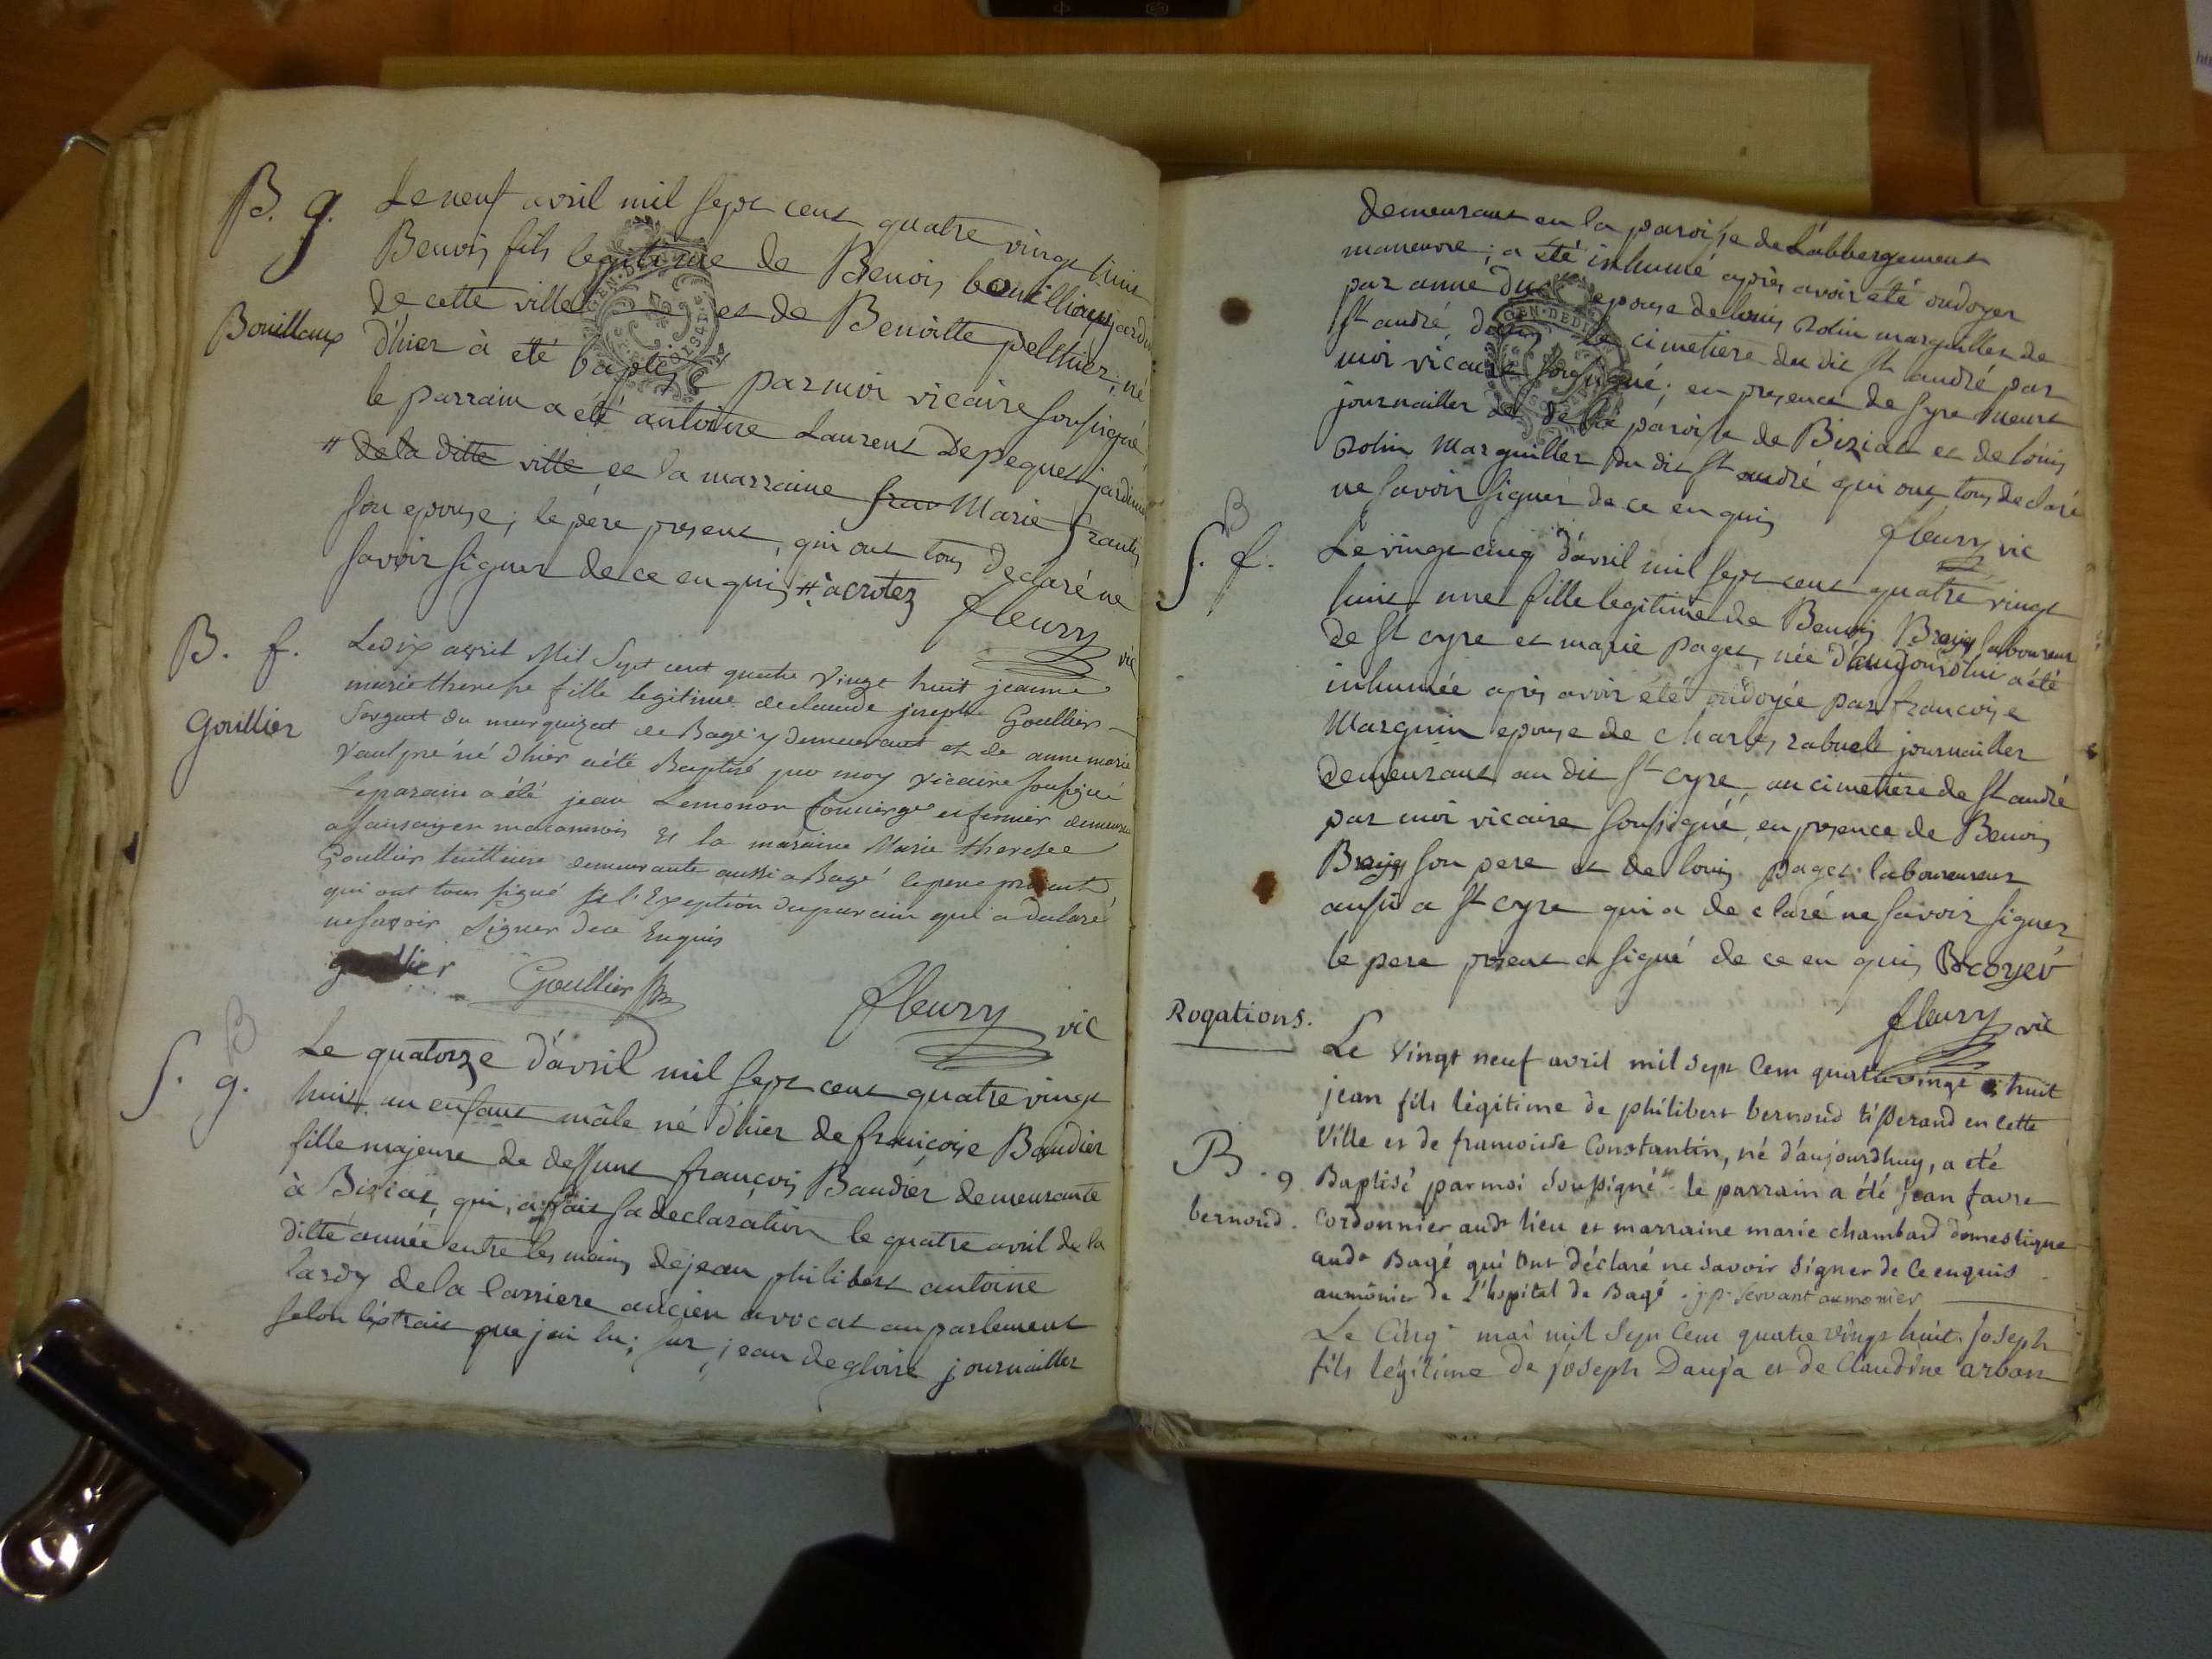 B. g. Le neuf avril mil sept cent quatre vingt huit
Benois fils legitime de Benois bouilloux jardi
de cette ville et de Benoitte pelthier, né
Bouilloux d'hier à eté baptisé par moi vicaire soussigné,
le parrain a été antoine Laurent Depeques jardinier
# de la ditte ville et la marraine fran Marie frantz
son epouse; le père present, qui ont tous declaré ne
savoir signer de ce enquis # à crotez fleury vic
B. f. Le dix avril Mil Sept cent quatre vingt huit jeanne
marie therese fille legitime de claude joseph Goullier
Goullier Sergent du marquizat de Bagé y demeurant et de anne marie
Vaulpré né d'hier a été Baptisé par moy vicaire soussigné
le parain a été jean Lemonon Concierge et fermier demeurant
a sansayer maconnois Et la maraine Marie therese
Goullier demeurante aussi a Bagé le pere présent
qui ont tous signé a l'Exeption du parain qui a declaré
ne savoir signer de ce Enquis
goullier Goullier fleury vic
B
S. g. Le quatorze d'avril mil sept cent quatre vingt
huit un enfant mâle né d'hier de françoise Baudier
fille majeure de deffunt françois Baudier demeurante
à Biziat, qui, a fait sa declaration le quatre avril de la
ditte année entre les mains de jean philibert antoine
lardy de la Carriere ancien avocat au parlement
selon l'extrait que j'ai lu; sur jean degloire journailler
demeurant en la paroisse de L'abbergement
maneuvre; a été inhumé après avoir été ondoyer
par anne du epouse de louis rolin marguiller de
St andré, dans le cimetiere du dit St andré par
moi vicaire soussigné; en presence de syre
journailler de la paroisse de Biziat et de louis
rolin Marguiller du dit St andré qui ont tous declaré
ne savoir signer de ce enquis fleury vic
B
S. f. Le vingt cinq d'avril mil sept cent quatre vingt
huit une fille legitime de Benois Broyer laboureur
de St cyre et marie paget, née d'aujourd'hui a été
inhumée après avoir été ondoyée par francoise
Marguin epouse de charles rabuel journailler
demeurant au dit St cyre, au cimetiere de St andré
par moi vicaire soussigné, en presence de Benois
Broyer son pere et de louis paget laboureur
aussi a St cyre qui a declaré ne savoir signer
le pere present a signé de ce enquis Broyer
fleury vic
Rogations.
Le vingt neuf avril mil sept Cem quatre vingt huit
jean fils légitime de philibert bernoud tisserand en cette
Ville et de framoisse Constantin, né d'aujourdhuy, a eté
B. g Baptisé par moi soussigné le parrain a été jean favre
bernoud. Cordonnier aud^t lieu et marraine marie chambard domestique
aud^t Bagé qui ont déclaré ne savoir signer de Ce enquis
aumônier de l'hopital de Bagé. j. p. servant aumonier
Le Cinq mai mil Sept Cem quatre vingt huit. joseph
fils légitime de joseph Dauja et de Claudine arban